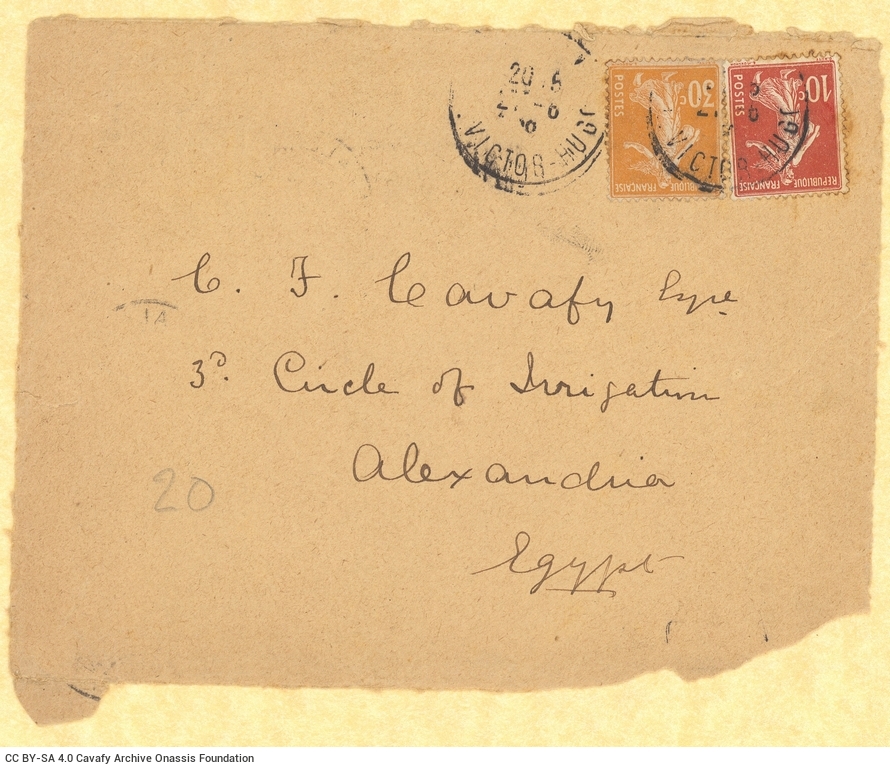 20
VICTOR-HUGO
30c
POSTES
REPUBLIQUE FRANÇAISE
10c
POSTES
REPUBLIQUE FRANÇAISE
VICTOR-HUGO
C. F. Cavafy Esqre
3D. Circle of Irrigation
Alexandria
Egypt
20
CC BY-SA 4.0 Cavafy Archive Onassis Foundation